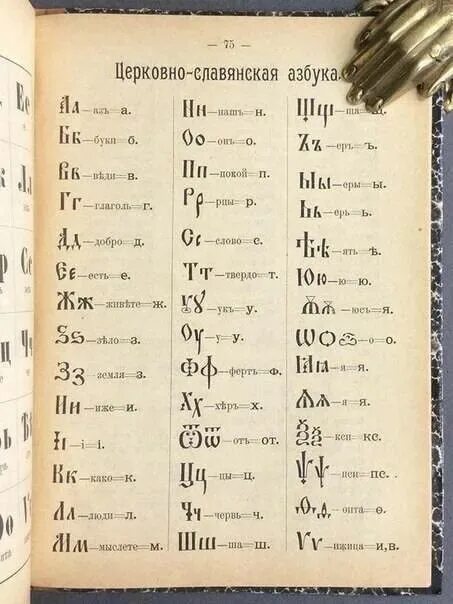 — 75 —
Церковно-славянская азбука.
Аа—азъ=а.
Бб—буки=б.
Вв—вѣди=в.
Гг—глаголь=г.
Дд—добро=д.
Єє—есть=е.
Жж—живѣте=ж.
Ѕѕ—зѣло=з.
Зз—земля=з.
Ии—иже=и.
Іі—і=і.
Кк—како=к.
Лл—люди=л.
Мм—мыслете=м.
Нн—нашъ=н.
Оо—онъ=о.
Пп—покой=п.
Рр—рцы=р.
Сс—слово=с.
Тт—твердо=т.
Ꙋꙋ—укъ=у.
Оу—у=у.
Фф—фертъ=ф.
Хх—хѣръ=х.
Ѿѿ—отъ=от.
Цц—цы=ц.
Чч—червь=ч.
Шш—ша=ш.
Щщ—ща=щ.
Ъъ—еръ=ъ.
Ыы—еры=ы.
Ьь—ерь=ь.
Ѣѣ—ять=ѣ.
Юю—ю=ю.
Ѫѫ—юсъ=я.
Ѡѽ—о=о.
Ꙗꙗ—я=я.
Ѧѧ—я=я.
Ѯѯ—кси=кс.
Ѱѱ—пси=пс.
Ѳѳ—ѳита=ѳ.
Ѵѵ—ижица=и,в.